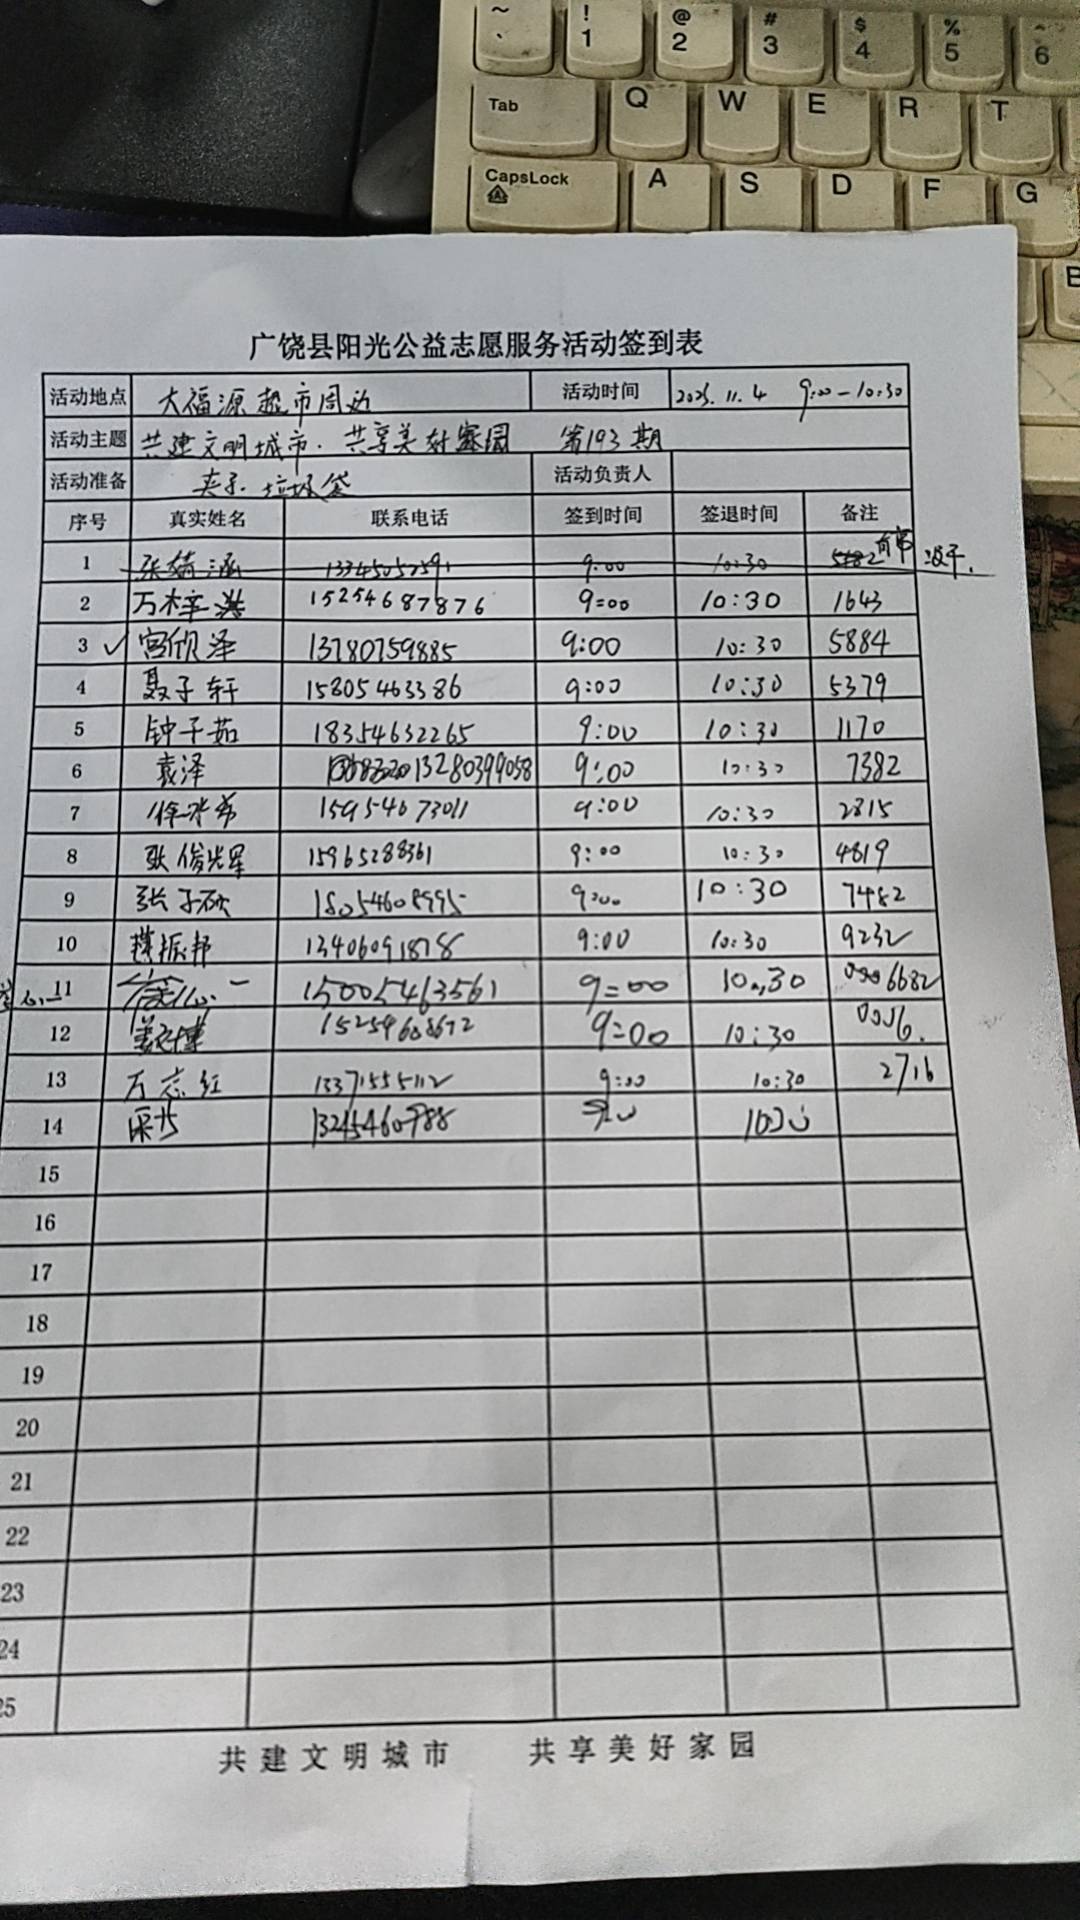 ~ ! @ # $ % ^
` 1 2 3 4 5 6
Tab Q W E R T
CapsLock A S D F G
A
B
广饶县阳光公益志愿服务活动签到表
活动地点 大福源超市周边 活动时间 2025.11.4 9:00-10:30
活动主题 共建文明城市.共享美好家园 第193期
活动准备 夹子.垃圾袋 活动负责人
序号 真实姓名 联系电话 签到时间 签退时间 备注
1 张婧涵 13345052591 9:00 10:30 5182 没干.
2 万梓 15254687876 9:00 10:30 1643
3 ✓ 宫欣泽 13780759885 9:00 10:30 5884
4 聂子轩 15805463386 9:00 10:30 5379
5 钟子茹 18354632265 9:00 10:30 1170
6 袁泽 13280399058 9:00 10:30 7382
7 徐冰希 15954673011 9:00 10:30 2815
8 张俊 15965288361 9:00 10:30 4819
9 张子硕 18054608995 9:00 10:30 7482
10 振邦 13406091878 9:00 10:30 9232
11 一 15005463561 9:00 10:30 6682
12 博 15254608672 9:00 10:30 0016.
13 万志红 13371555112 9:00 10:30 2716
14 13245460988 9:00 10:30
15
16
17
18
19
20
21
22
23
24
25
共建文明城市 共享美好家园